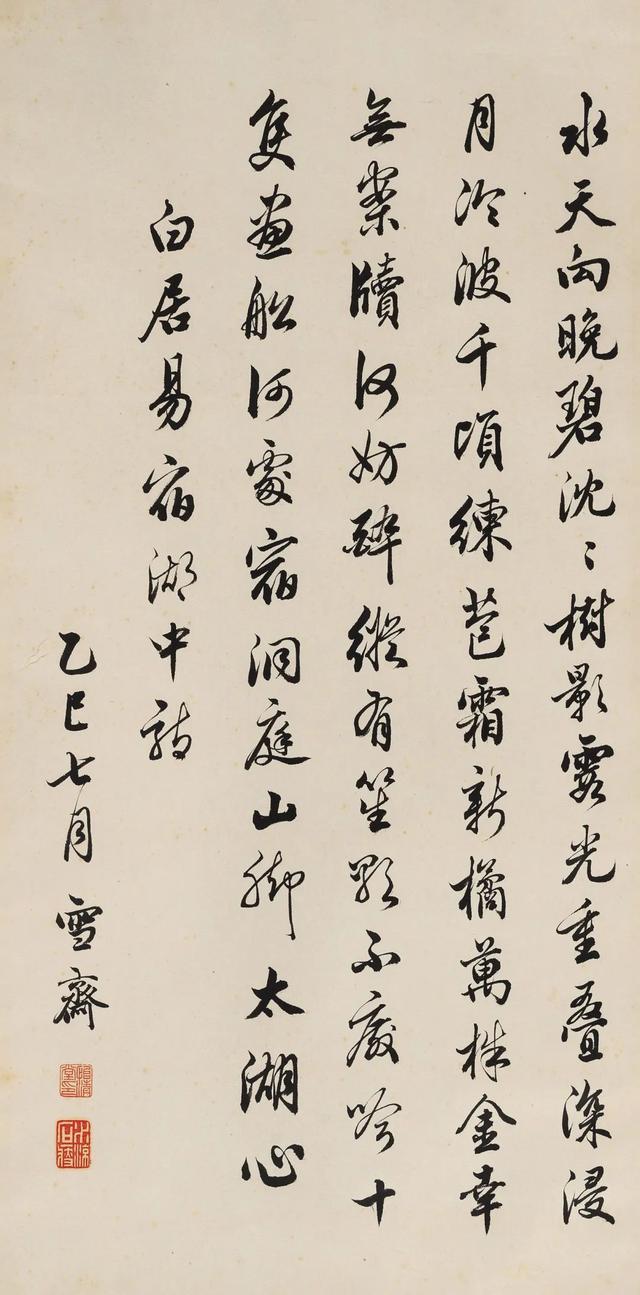 水天向晚碧沈〻樹影霞光重疊深浸
月冷波千頃練苞霜新橘萬株金幸
無案牘何妨醉縱有笙歌不廢吟十
隻畫船何處宿洞庭山脚太湖心
白居易宿湖中詩
乙巳七月雪齋